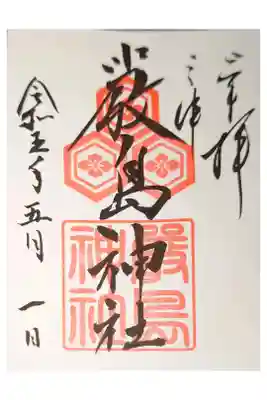 奉拝
厳島神社
嚴島
神社
令和五年五月一日